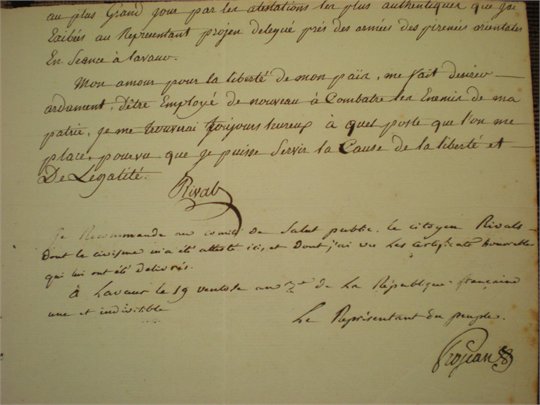 au plus Grand Jour par les atestations les plus authentiques que j'ai
Exibés au Représentant projen delegué prés des armées des pirenées orientales
En Seance à Lavaur.
Mon amour pour la liberté de mon païx, me fait desirer
ardament, d'être Employé de nouveau à Combatre les Enemis de ma
patrie, je me trouvrai toujours heureux à quel poste que l'on me
place, pourvu que je puisse Servir la Cause de la liberté et
De Légalité.
Rivals
Je Recommande au comité de Salut public, le citoyen Rivals
dont le civisme m'a été attesté ici, et dont j'ai vu les certificats honorable
qui lui ont été delivrés.
à Lavaur le 19 ventose an de la République française
une et indivisible
Le Représentant du peuple.
Projean